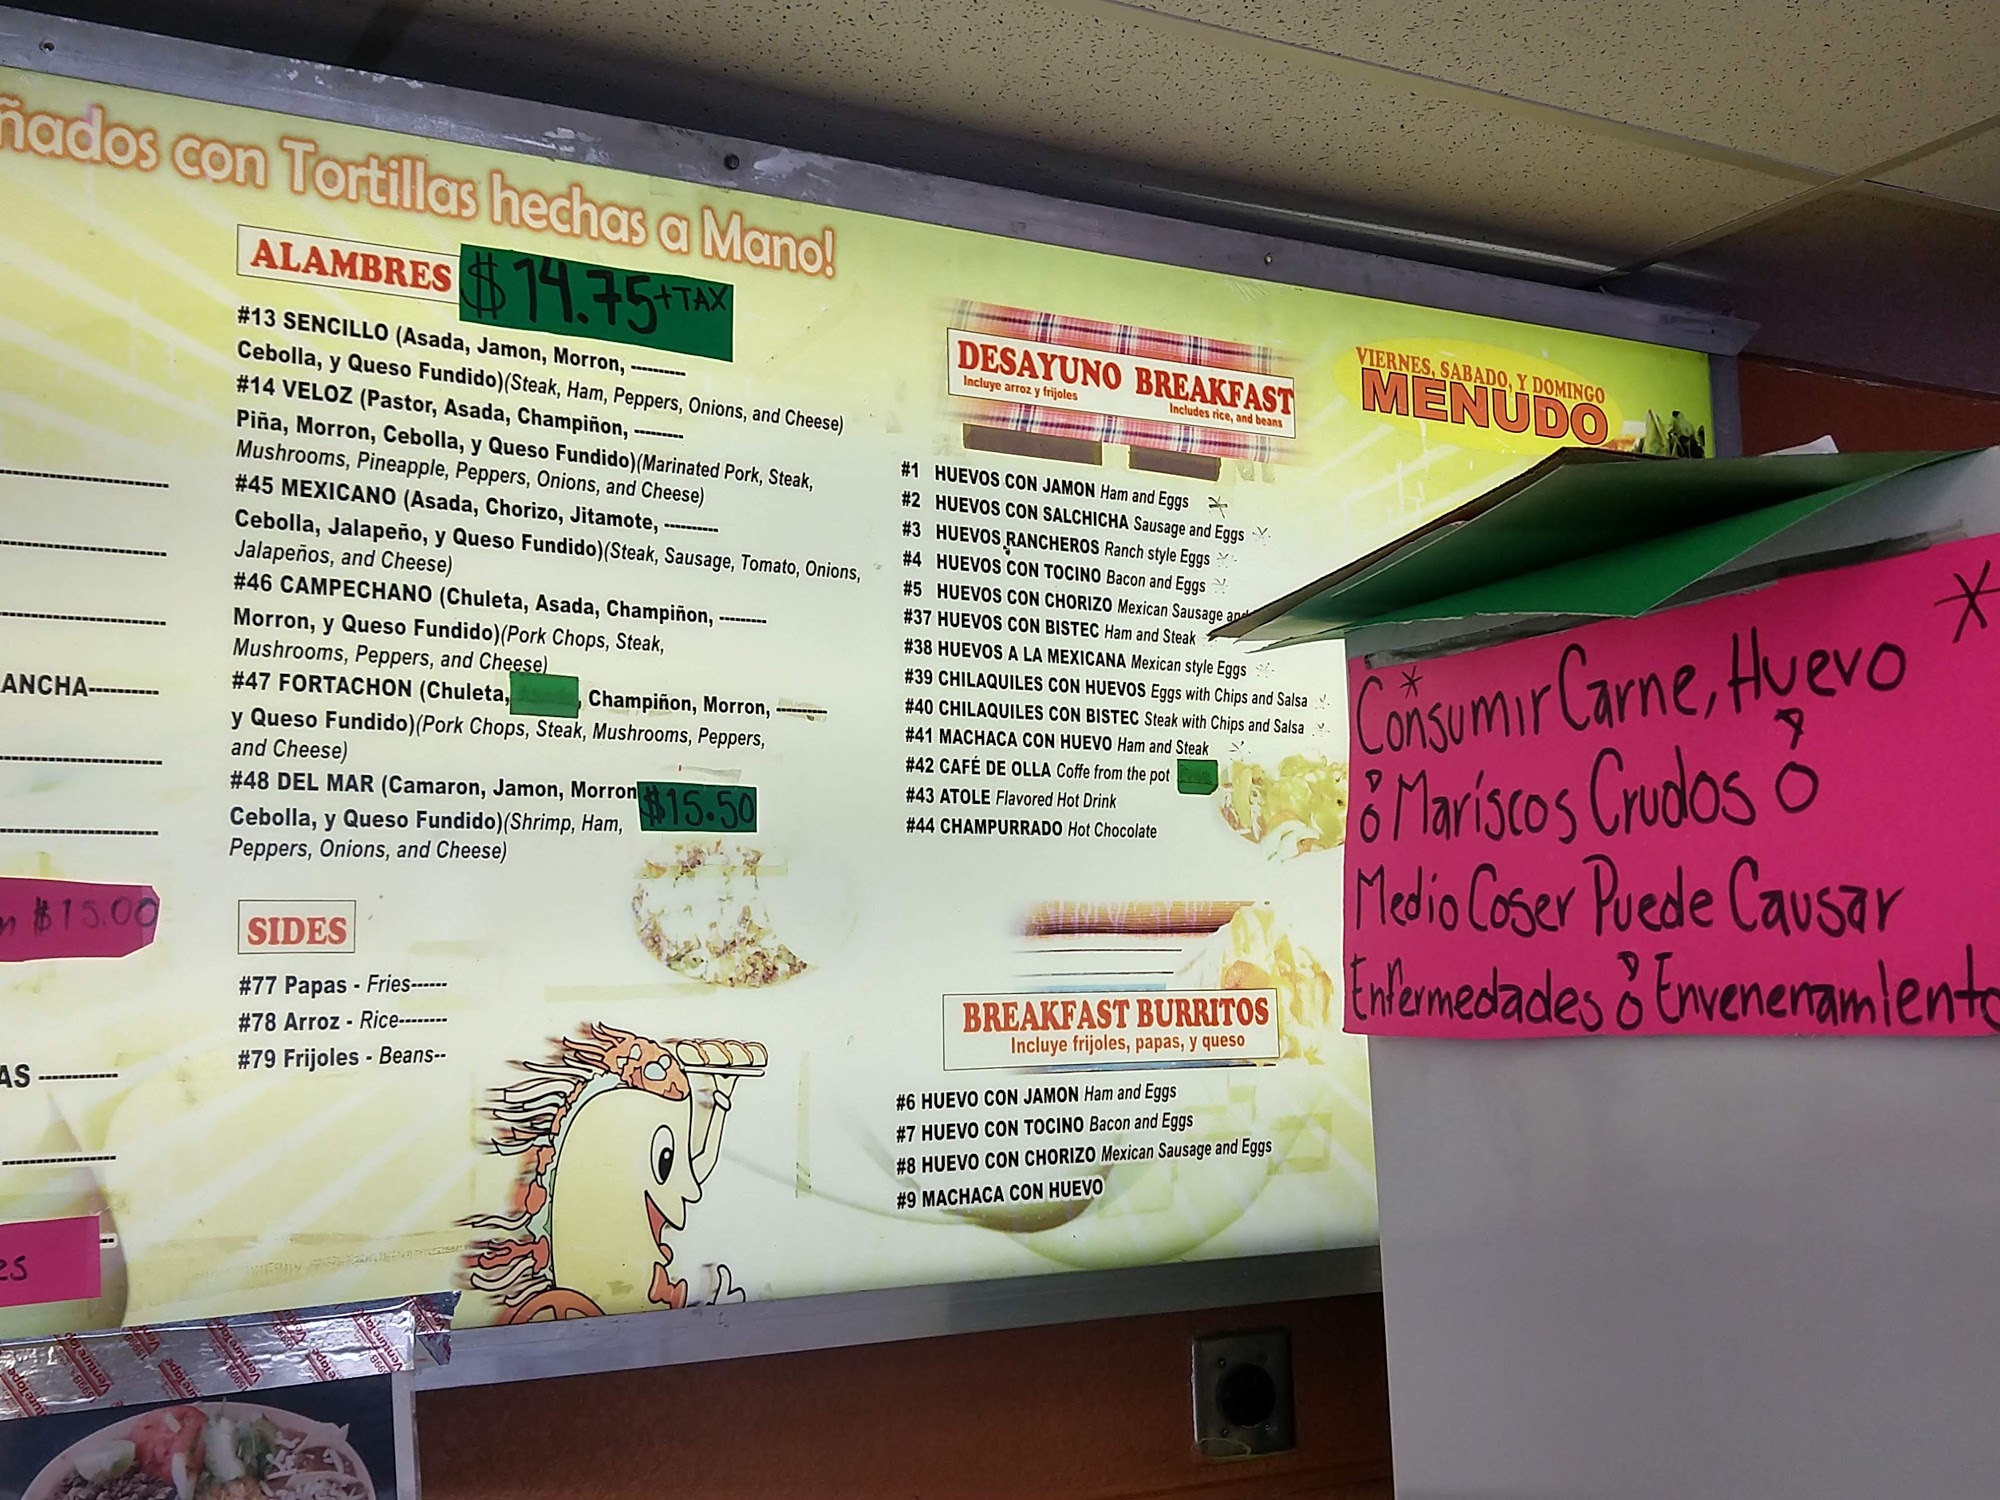 ñados con Tortillas hechas a Mano!
ANCHA----------
$15.00
AS ----------
es
ALAMBRES $14.75 +TAX
#13 SENCILLO (Asada, Jamon, Morron, ----------
Cebolla, y Queso Fundido)(Steak, Ham, Peppers, Onions, and Cheese)
#14 VELOZ (Pastor, Asada, Champiñon, ---------
Piña, Morron, Cebolla, y Queso Fundido)(Marinated Pork, Steak,
Mushrooms, Pineapple, Peppers, Onions, and Cheese)
#45 MEXICANO (Asada, Chorizo, Jitamote, ----------
Cebolla, Jalapeño, y Queso Fundido)(Steak, Sausage, Tomato, Onions,
Jalapeños, and Cheese)
#46 CAMPECHANO (Chuleta, Asada, Champiñon, ---------
Morron, y Queso Fundido)(Pork Chops, Steak,
Mushrooms, Peppers, and Cheese)
#47 FORTACHON (Chuleta, , Champiñon, Morron, ---------
y Queso Fundido)(Pork Chops, Steak, Mushrooms, Peppers,
and Cheese)
#48 DEL MAR (Camaron, Jamon, Morron $15.50
Cebolla, y Queso Fundido)(Shrimp, Ham,
Peppers, Onions, and Cheese)
SIDES
#77 Papas - Fries------
#78 Arroz - Rice--------
#79 Frijoles - Beans--
DESAYUNO BREAKFAST
Incluye arroz y frijoles Includes rice, and beans
#1 HUEVOS CON JAMON Ham and Eggs *
#2 HUEVOS CON SALCHICHA Sausage and Eggs *
#3 HUEVOS RANCHEROS Ranch style Eggs *
#4 HUEVOS CON TOCINO Bacon and Eggs *
#5 HUEVOS CON CHORIZO Mexican Sausage and
#37 HUEVOS CON BISTEC Ham and Steak *
#38 HUEVOS A LA MEXICANA Mexican style Eggs *
#39 CHILAQUILES CON HUEVOS Eggs with Chips and Salsa *
#40 CHILAQUILES CON BISTEC Steak with Chips and Salsa *
#41 MACHACA CON HUEVO Ham and Steak *
#42 CAFÉ DE OLLA Coffe from the pot
#43 ATOLE Flavored Hot Drink
#44 CHAMPURRADO Hot Chocolate
BREAKFAST BURRITOS
Incluye frijoles, papas, y queso
#6 HUEVO CON JAMON Ham and Eggs
#7 HUEVO CON TOCINO Bacon and Eggs
#8 HUEVO CON CHORIZO Mexican Sausage and Eggs
#9 MACHACA CON HUEVO
VIERNES, SABADO, Y DOMINGO
MENUDO
* Consumir Carne, Huevo *
ó Mariscos Crudos ó
Medio Coser Puede Causar
Enfermedades ó Envenenamiento
Venture Tape